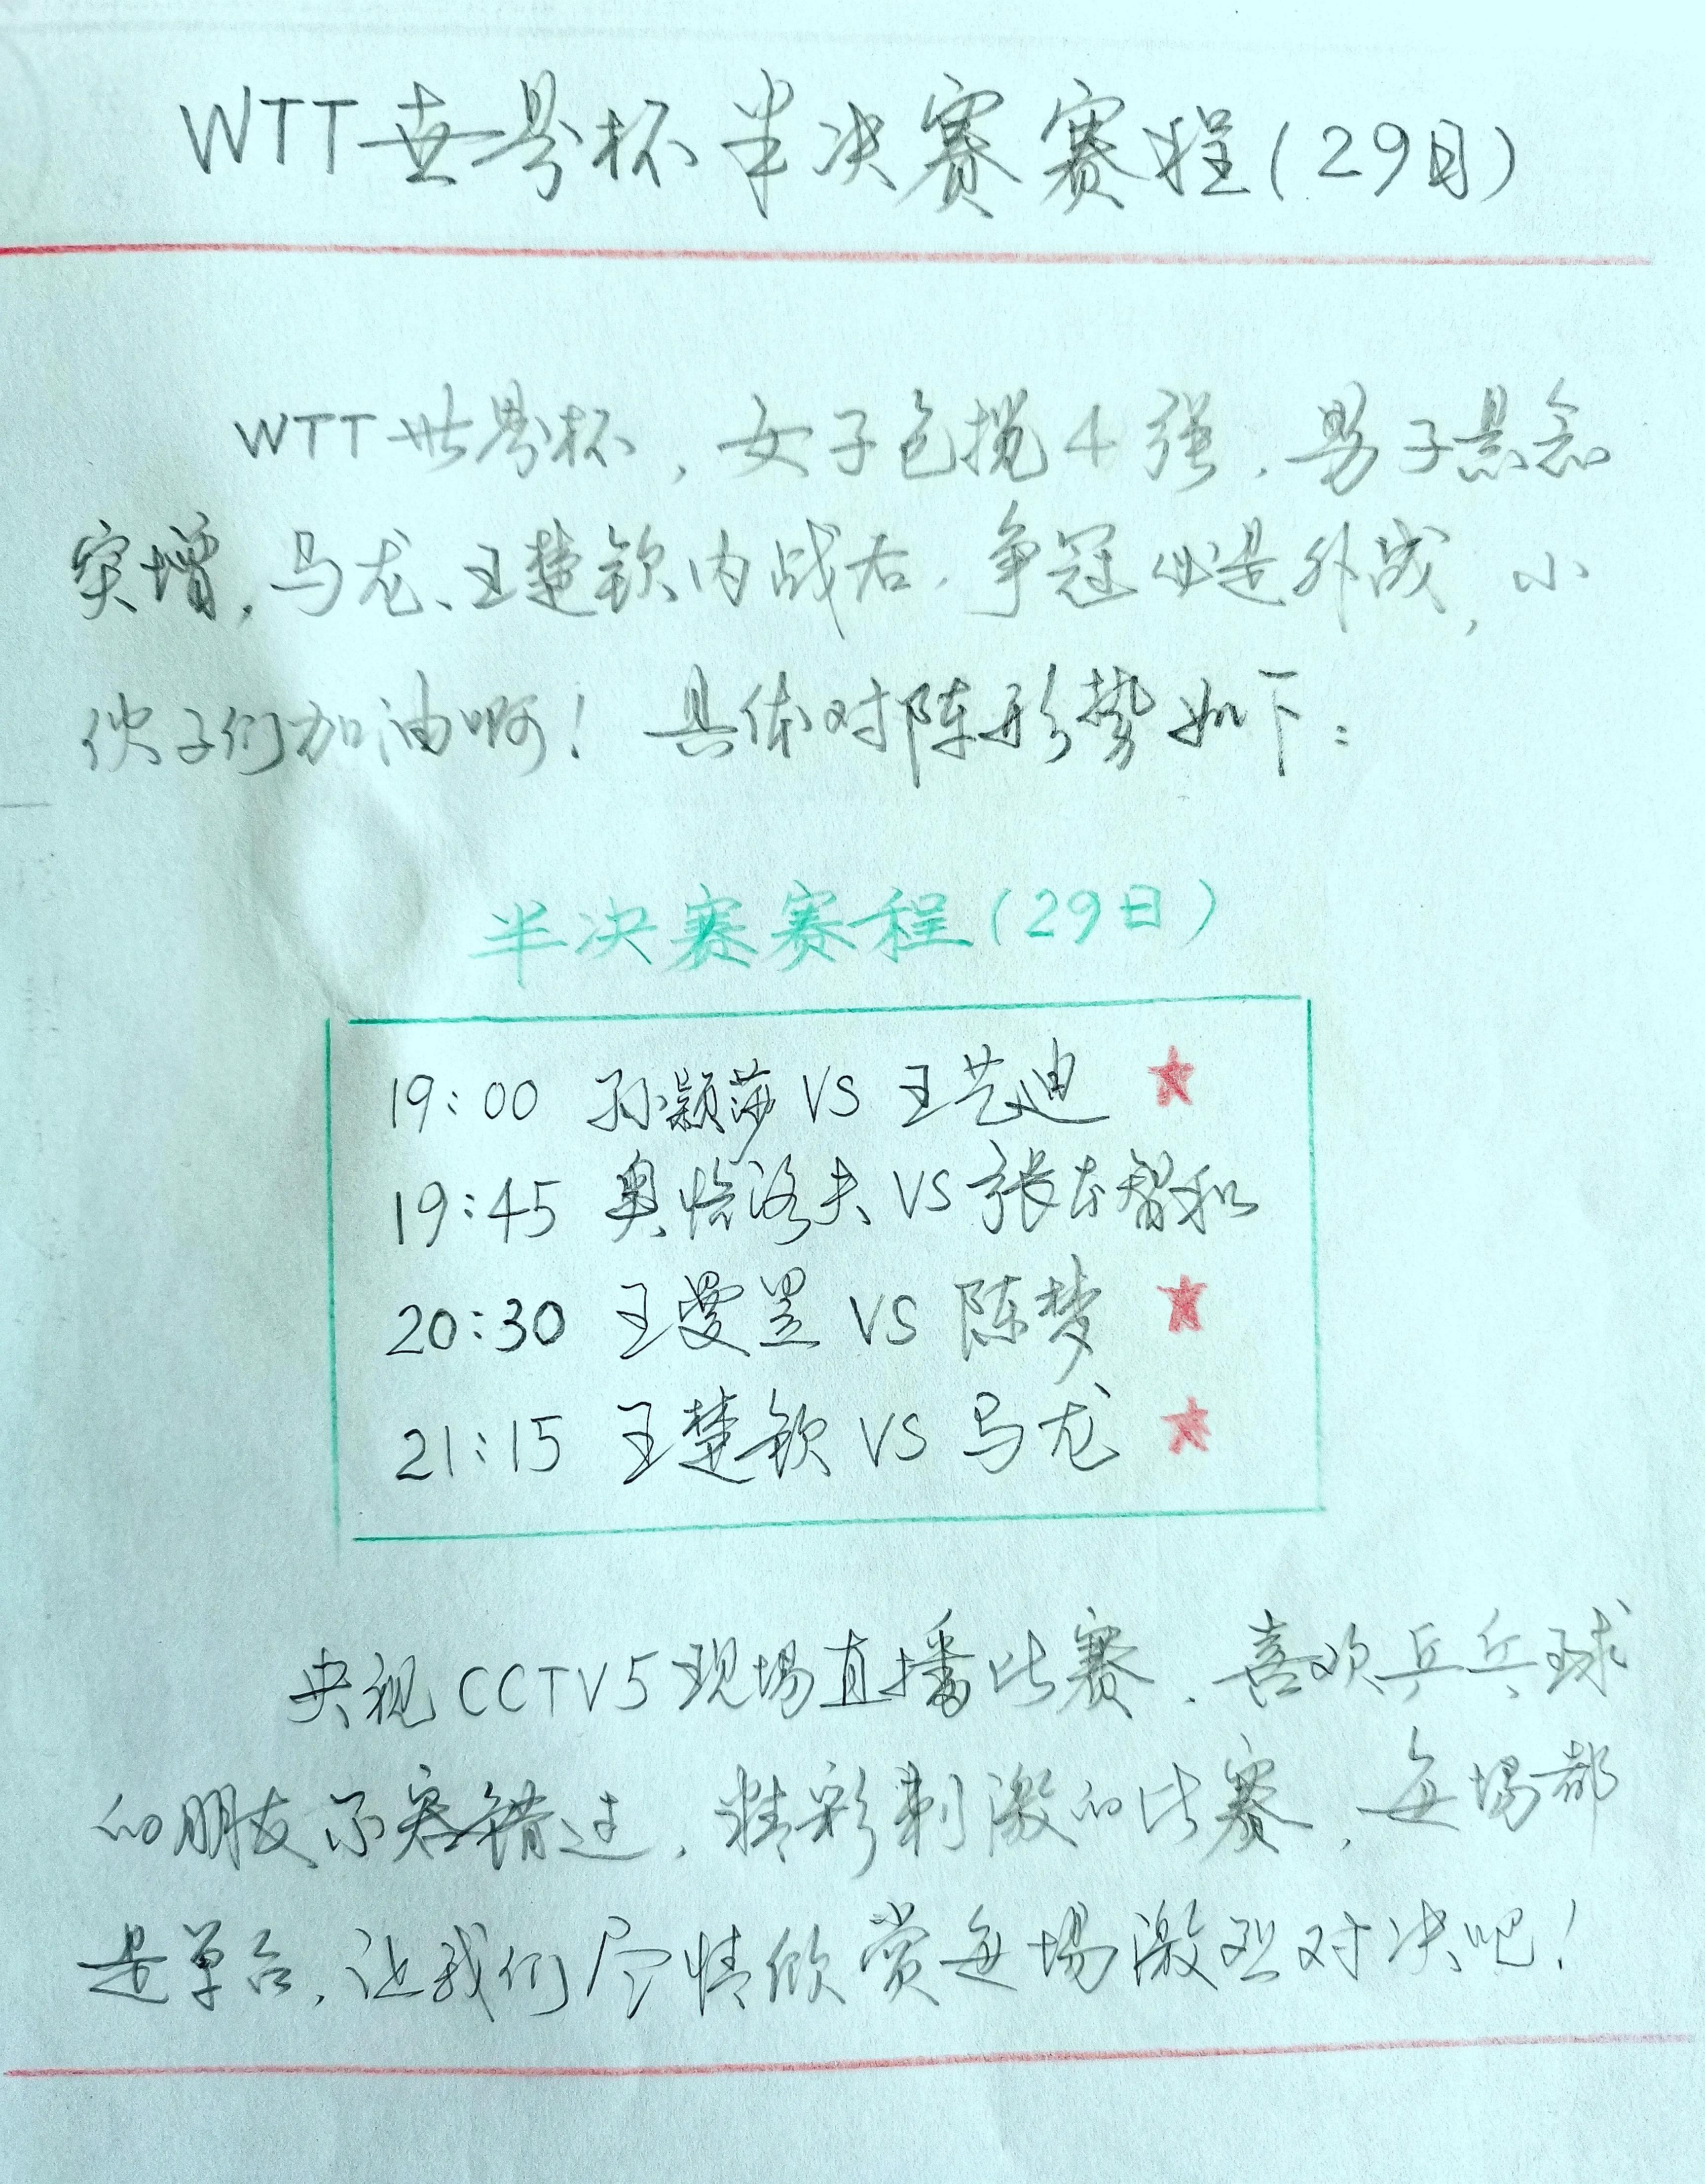 WTT世界杯半决赛赛程(29日)
WTT世界杯,女子包揽4强,男子悬念
突增,马龙、王楚钦内战后,争冠必是外战,小
伙子们加油啊!具体对陈形势如下:
半决赛赛程(29日)
19:00 孙颖莎 VS 王艺迪
19:45 奥恰洛夫 VS 张本智和
20:30 王曼昱 VS 陈梦
21:15 王楚钦 VS 马龙
央视CCTV5现场直播比赛,喜欢乒乓球
的朋友不容错过,精彩刺激的比赛,每场都
是单台,让我们尽情欣赏每场激烈对决吧!